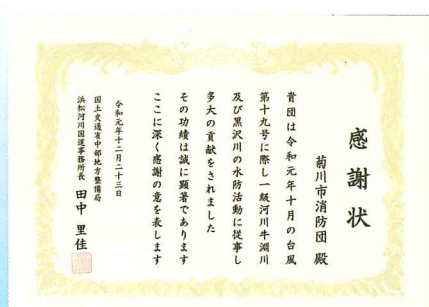 感謝状
菊川市消防団 殿
貴団は令和元年十月の台風
第十九号に際し一級河川牛淵川
及び黒沢川の水防活動に従事し
多大の貢献をされました
その功績は誠に顕著であります
ここに深く感謝の意を表します
令和元年十二月二十三日
国土交通省中部地方整備局
浜松河川国道事務所長 田中 里佳